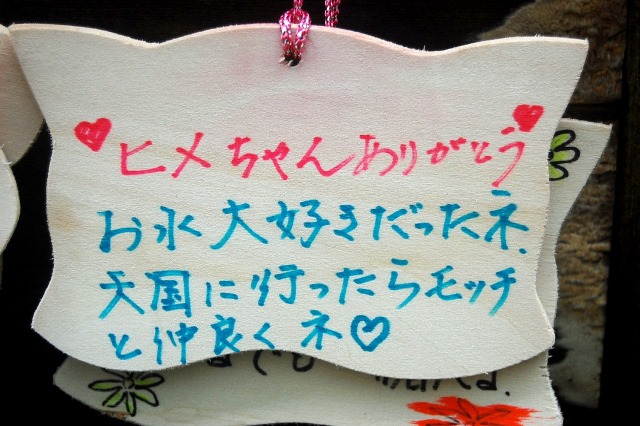 ♥ヒメちゃんありがとう♥
お水大好きだったネ.
天国に行ったらモッチ
と仲良くネ♡
でも